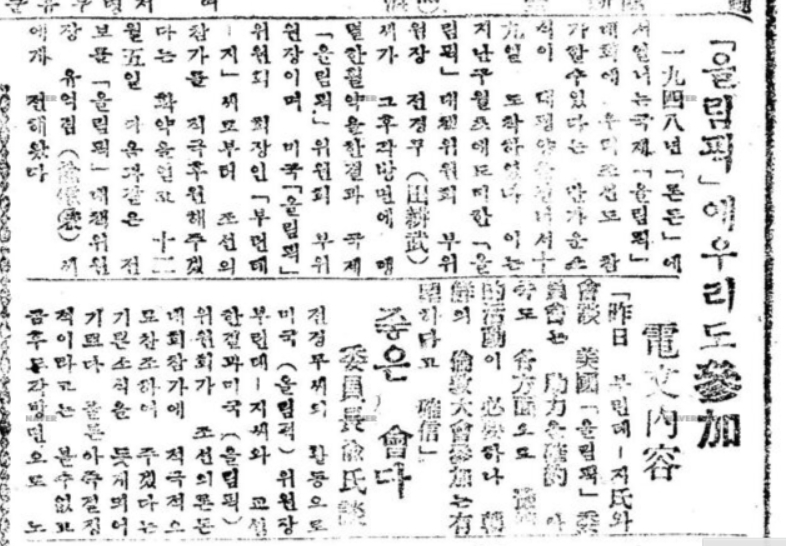 「올림픽」에우리도參加
一九四八年「론돈」에
서열니는국제「올림픽」
대회에 우리조선도 참
가할수있다는 반가운소
식이 태평양을건너서十
九일 도착하였다 이는
지난구월초에도미한「올
림픽」대책위원회 부위
원장 전경무(田耕武)
씨가 그후각방면에 맹
렬한활약을한결과 국제
「올림픽」위원회 부위
원장이며 미국「올림픽」
위원회 회장인「부런데
-지」씨로부터 조선의
참가를 적극후원해주겠
다는 확약을얻고 十二
월五일 다음과같은 전
보를「올림픽」대책위원
장 유억겸(兪億兼)씨
에게 전해왔다
電文內容
「昨日 부런데-지氏와
會談 美國「올림픽」委
員會는 助力을確約 아
즉도 各方面으로
的活動이 必要하나 朝
鮮의 倫敦大會參加는有
望하다고 確信」
좋은 會다
委員長兪氏談
전경무씨의 활동으로
미국(올림픽)위원장
부런데-지씨와 교섭
한결과미국(올림픽)
위원회가 조선의론돈
대회참가에 적극적으
로찬조하여 주겠다는
기쁜소식을 듯게되어
기쁘다 물론아주결정
적이라고는 볼수없고
금후도각방면으로 노